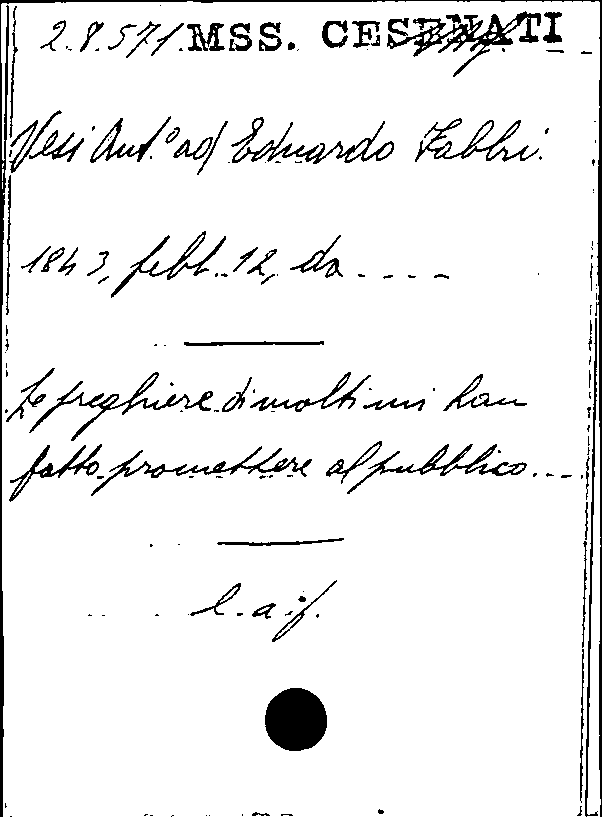 2.8.571. MSS. CESENATI
Vesi Ant.º ad Eduardo Fabbri.
1843, febb. 12, da ....
Le preghiere di molti mi han
fatto promettere al pubblico....
l. a. f.